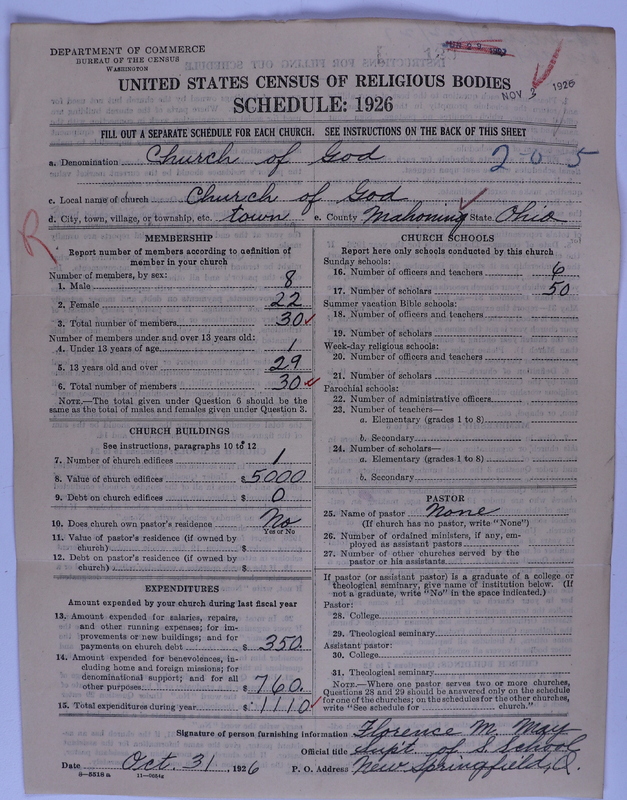 DEPARTMENT OF COMMERCE
BUREAU OF THE CENSUS
WASHINGTON
NOV 5 1926
UNITED STATES CENSUS OF RELIGIOUS BODIES
SCHEDULE: 1926
FILL OUT A SEPARATE SCHEDULE FOR EACH CHURCH. SEE INSTRUCTIONS ON THE BACK OF THIS SHEET
a. Denomination Church of God 2-0-5
c. Local name of church Church of God
d. City, town, village, or township, etc. town e. County Mahoning State Ohio
R
MEMBERSHIP
Report number of members according to definition of
member in your church
Number of members, by sex:
1. Male 8
2. Female 22
3. Total number of members 30
Number of members under and over 13 years old:
4. Under 13 years of age 1
5. 13 years old and over 29
6. Total number of members 30
NOTE.—The total given under Question 6 should be
the same as the total of males and females given under Question 3.
CHURCH BUILDINGS
See instructions, paragraphs 10 to 12
7. Number of church edifices 1
8. Value of church edifices $5000
9. Debt on church edifices $ 0
10. Does church own pastor's residence No
Yes or No
11. Value of pastor's residence (if owned by
church) $
12. Debt on pastor's residence (if owned by
church) $
EXPENDITURES
Amount expended by your church during last fiscal year
13. Amount expended for salaries, repairs,
and other running expenses; for im-
provements or new buildings; and for
payments on church debt $ 350.
14. Amount expended for benevolences, in-
cluding home and foreign missions; for
denominational support; and for all
other purposes $ 760.
15. Total expenditures during year $ 1110
CHURCH SCHOOLS
Report here only schools conducted by this church
Sunday schools:
16. Number of officers and teachers 6
17. Number of scholars 50
Summer vacation Bible schools:
18. Number of officers and teachers
19. Number of scholars
Week-day religious schools:
20. Number of officers and teachers
21. Number of scholars
Parochial schools:
22. Number of administrative officers
23. Number of teachers—
a. Elementary (grades 1 to 8)
b. Secondary
24. Number of scholars—
a. Elementary (grades 1 to 8)
b. Secondary
PASTOR
25. Name of pastor None
(If church has no pastor, write "None")
26. Number of ordained ministers, if any, em-
ployed as assistant pastors
27. Number of other churches served by the
pastor or his assistants
If pastor (or assistant pastor) is a graduate of a college or
theological seminary, give name of institution below. (If
not a graduate, write "No" in the space indicated.)
Pastor:
28. College
29. Theological seminary
Assistant pastor:
30. College
31. Theological seminary
NOTE.—Where one pastor serves two or more churches,
Questions 28 and 29 should be answered only on the schedule
for one of the churches; on the schedules for the other churches,
write "See schedule for church."
Signature of person furnishing information Florence M. May
Official title Supt. of S. School
Date Oct. 31, 1926 P. O. Address New Springfield, O.
8—5518 a 11—9654g